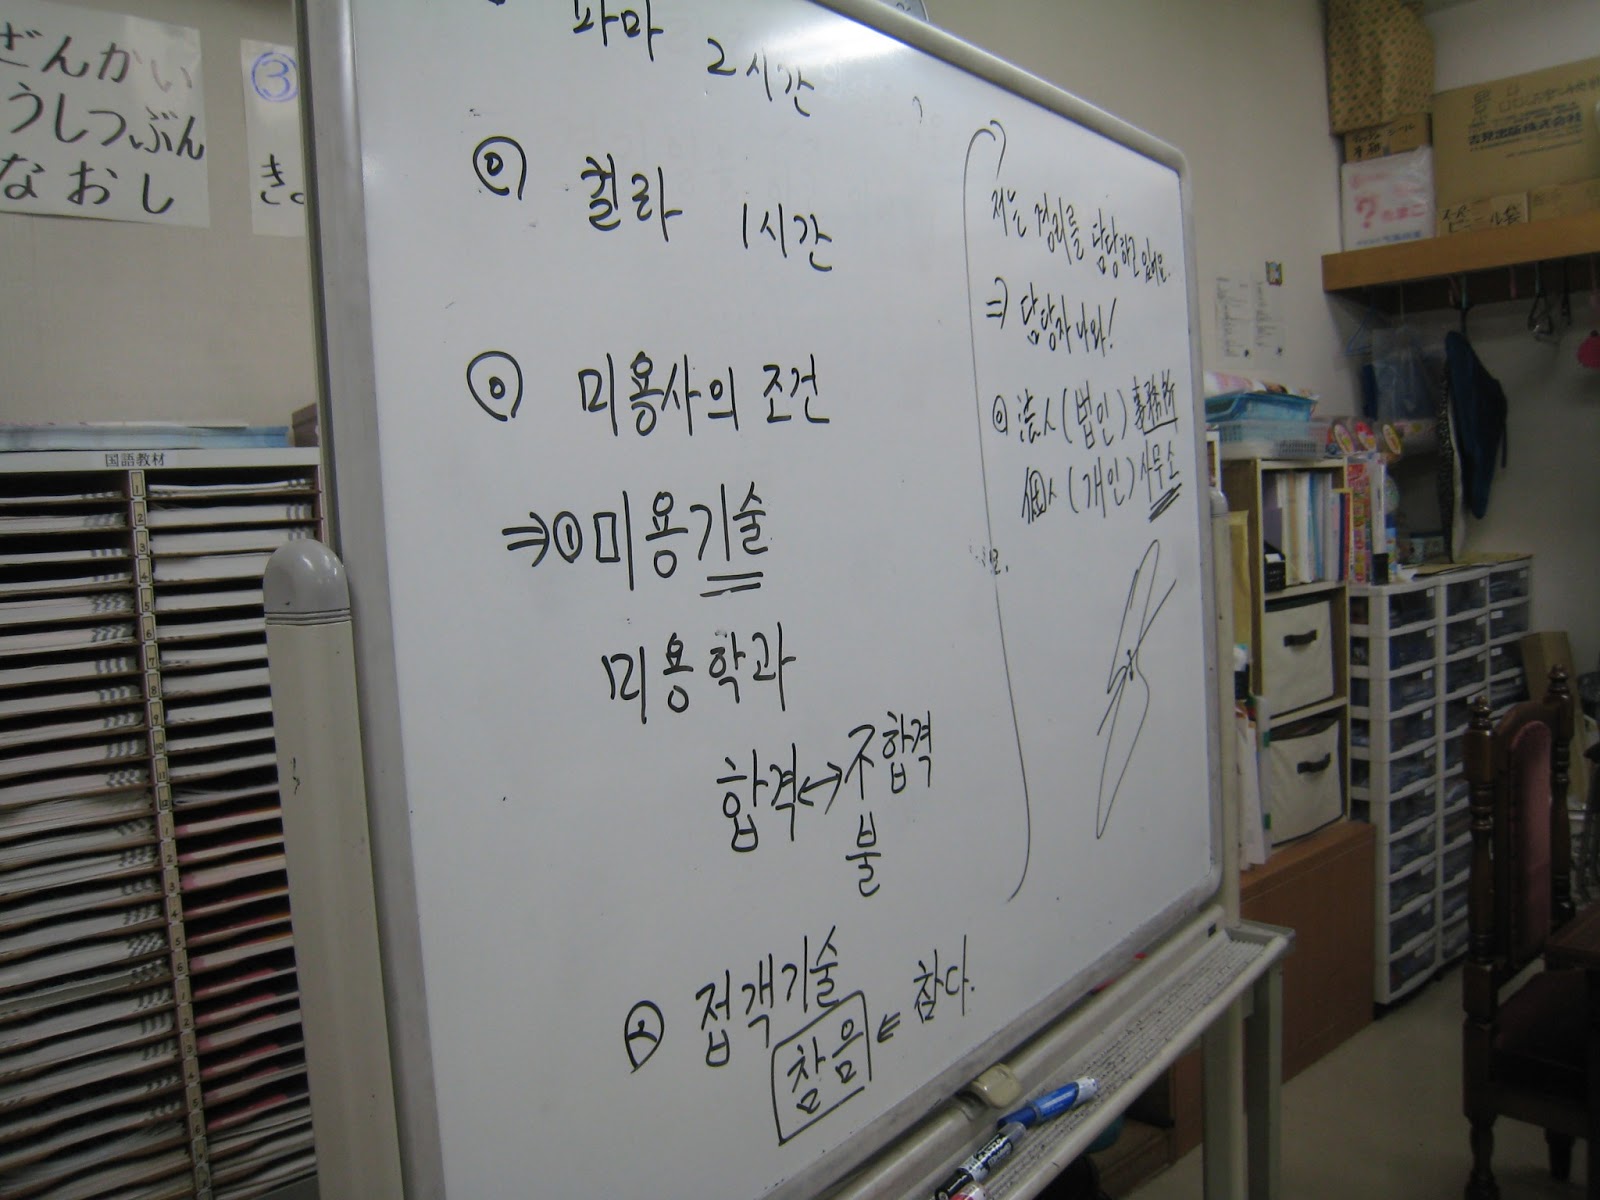 ざんかい
うしつぶん
なおし
③
国語教材
파마 2시간
컬러 1시간
미용사의 조건
⇒ ① 미용기술
미용학과
합격 ↔ 不합격
불
② 접객기술
참음 ⇐ 참다.
저는 정리를 담당하고
⇒ 담당자 나와!
法人(법인) 事務所
個人(개인) 사무소
吉見出版株式会社
ビニール袋